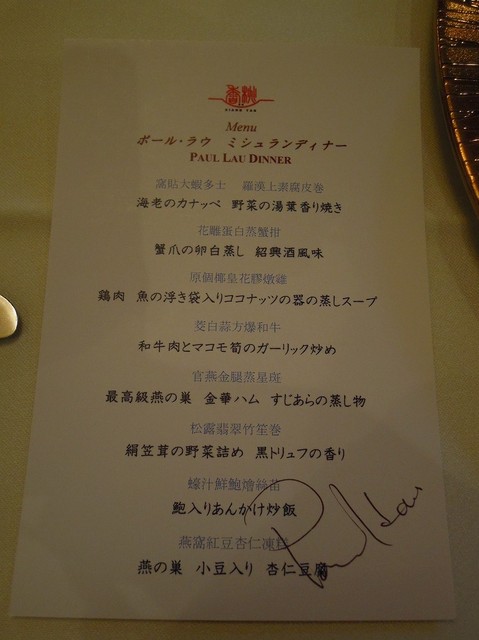 香桃
XIANG TAO
Menu
ポール・ラウ　ミシュランディナー
PAUL LAU DINNER
窩貼大蝦多士　羅漢上素腐皮卷
海老のカナッペ　野菜の湯葉香り焼き
花雕蛋白蒸蟹拑
蟹爪の卵白蒸し　紹興酒風味
原個椰皇花膠燉雞
鶏肉　魚の浮き袋入りココナッツの器の蒸しスープ
茭白蒜方爆和牛
和牛肉とマコモ筍のガーリック炒め
官燕金腿蒸星斑
最高級燕の巣　金華ハム　すじあらの蒸し物
松露翡翠竹笙卷
絹笠茸の野菜詰め　黒トリュフの香り
蠔汁鮮鮑燴絲苗
鮑入りあんかけ炒飯
燕窩紅豆杏仁凍糕
燕の巣　小豆入り　杏仁豆腐
Paul Lau